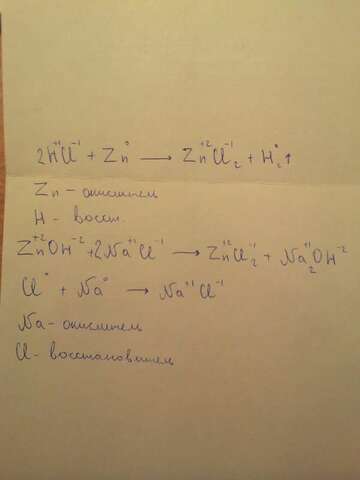 2H⁺¹Cl⁻¹ + Zn⁰ ⟶ Zn⁺²Cl⁻¹₂ + H⁰₂↑
Zn – окислители
H – восст.
Zn⁺²OH⁻² + 2Na⁺¹Cl⁻¹ ⟶ Zn⁺²Cl⁻¹₂ + Na⁺¹₂OH⁻²
Cl⁰ + Na⁰ ⟶ Na⁺¹Cl⁻¹
Na – окислитель
Cl – восстановител